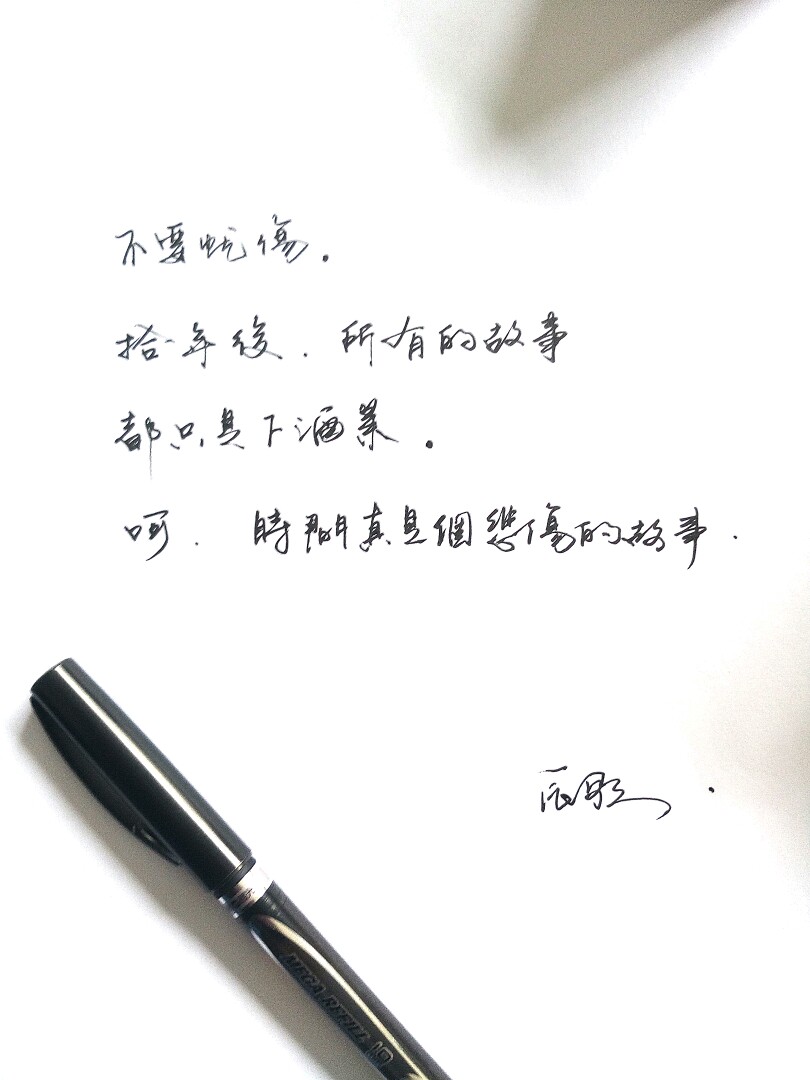 不要忧傷.
拾年後.所有的故事
都只是下酒菜.
呵.時間真是個悲傷的故事.
MEGA REFILL 1.0